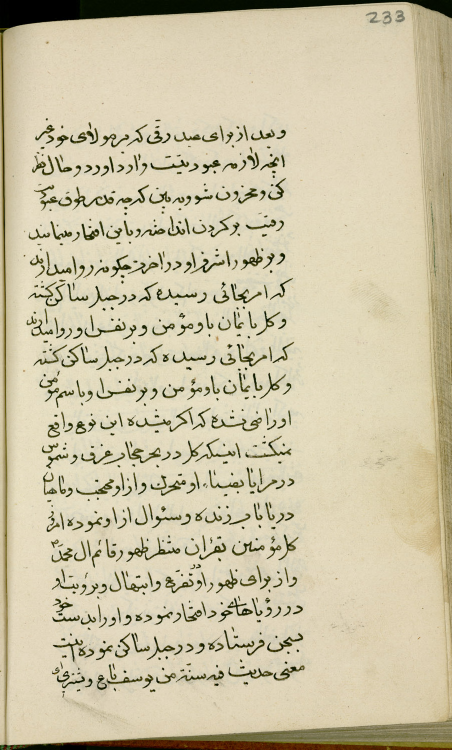 233
و بعد از برای عبد رقی که بر مولای خود غیر
آنچه لازمه عبودیت وارد آورد و حال نظر
کن و محزون شو و ببین که چه قدر طوق عبودیت
رقیت بر گردن انداخته و باین افتخار مینمایند
و بر ظهور اشرف او در آخرت چگونه روا میدارند
که امر بجائی رسیده که در جبل ساکن گشته
و کل بایمان باو مؤمن و بر نفس او روا میدارند
که امر بجائی رسیده که در جبل ساکن گشته
و کل بایمان باو مؤمن و بر نفس او باسم مؤمن
او راضی نشده که اگر میشده این نوع واقع
نمیگشت اینست که کل در بحر حجاب غرق و شموس
در مرایا بضیاء او متحرک و از او محتجب و ماهیان
دریا بآب زنده و سئوال از او نموده امروز
کل مؤمنین بقرآن منتظر ظهور قائم آل محمد ص
و از برای ظهور او در تضرع و ابتهال و برؤیت او
در رؤیاهای خود افتخار نموده و او را بدست خود
بسجن فرستاده و در جبل ساکن نموده اینست
معنی حدیث فیه سنة من یوسف یباع و یشتری